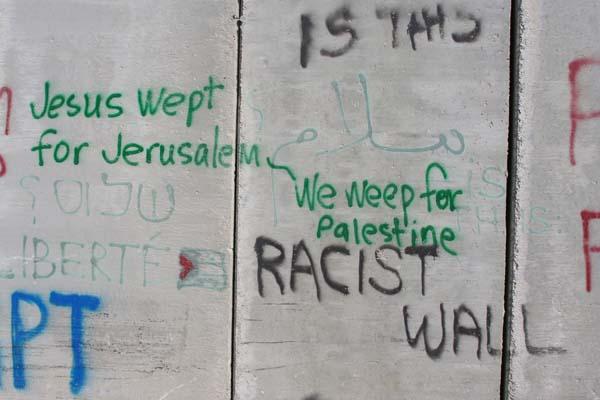 IS THIS
Jesus wept
for Jerusalem
سلام
We weep for
Palestine
שלום?
LIBERTÉ
RACIST
WALL
PT